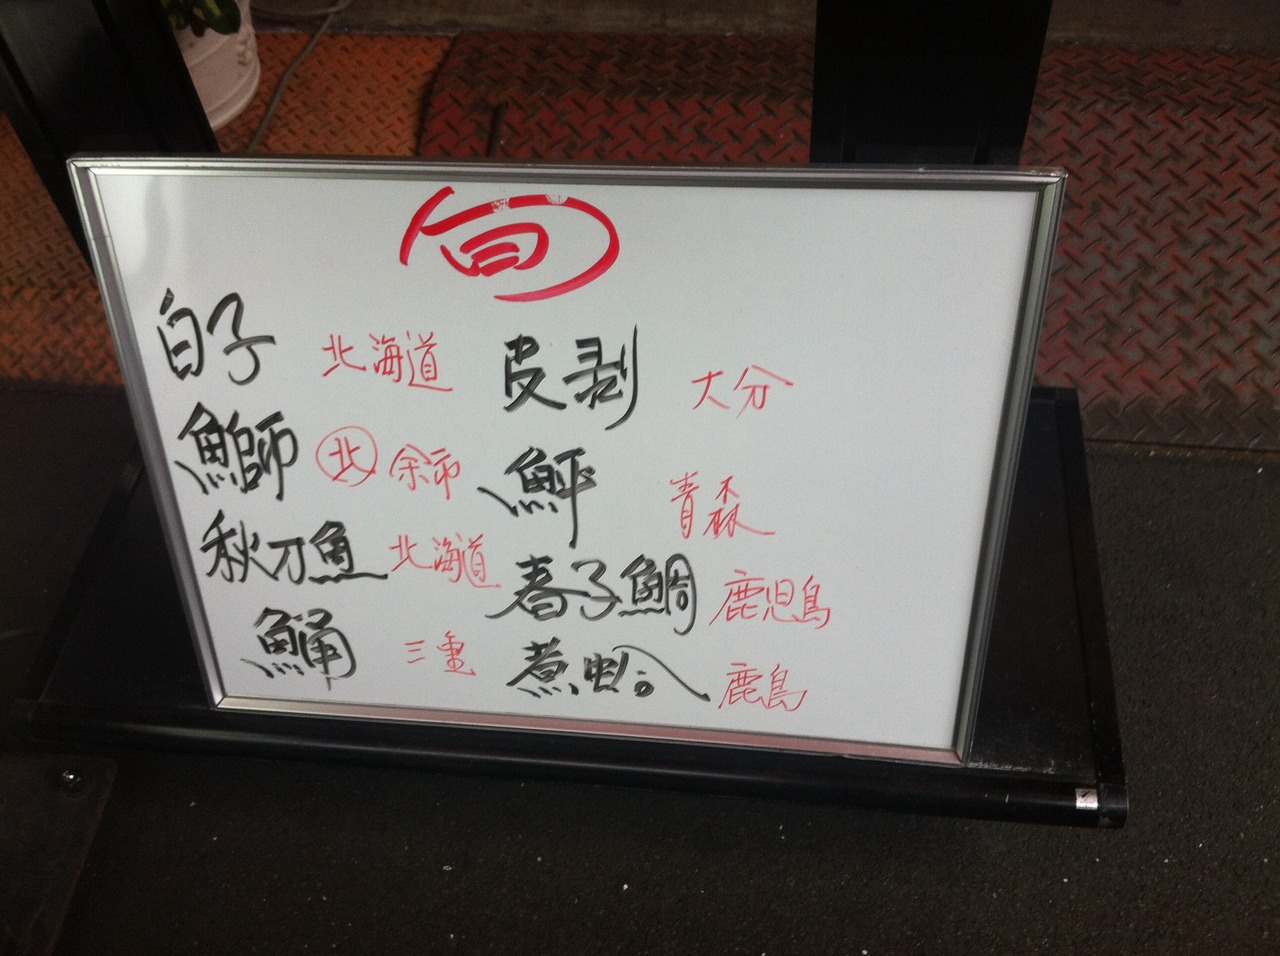 旬
白子 北海道
鰤 ㊋北 余市
秋刀魚 北海道
鯒 三重
皮剥 大分
鮃 青森
春子鯛 鹿児島
煮蛤 鹿島